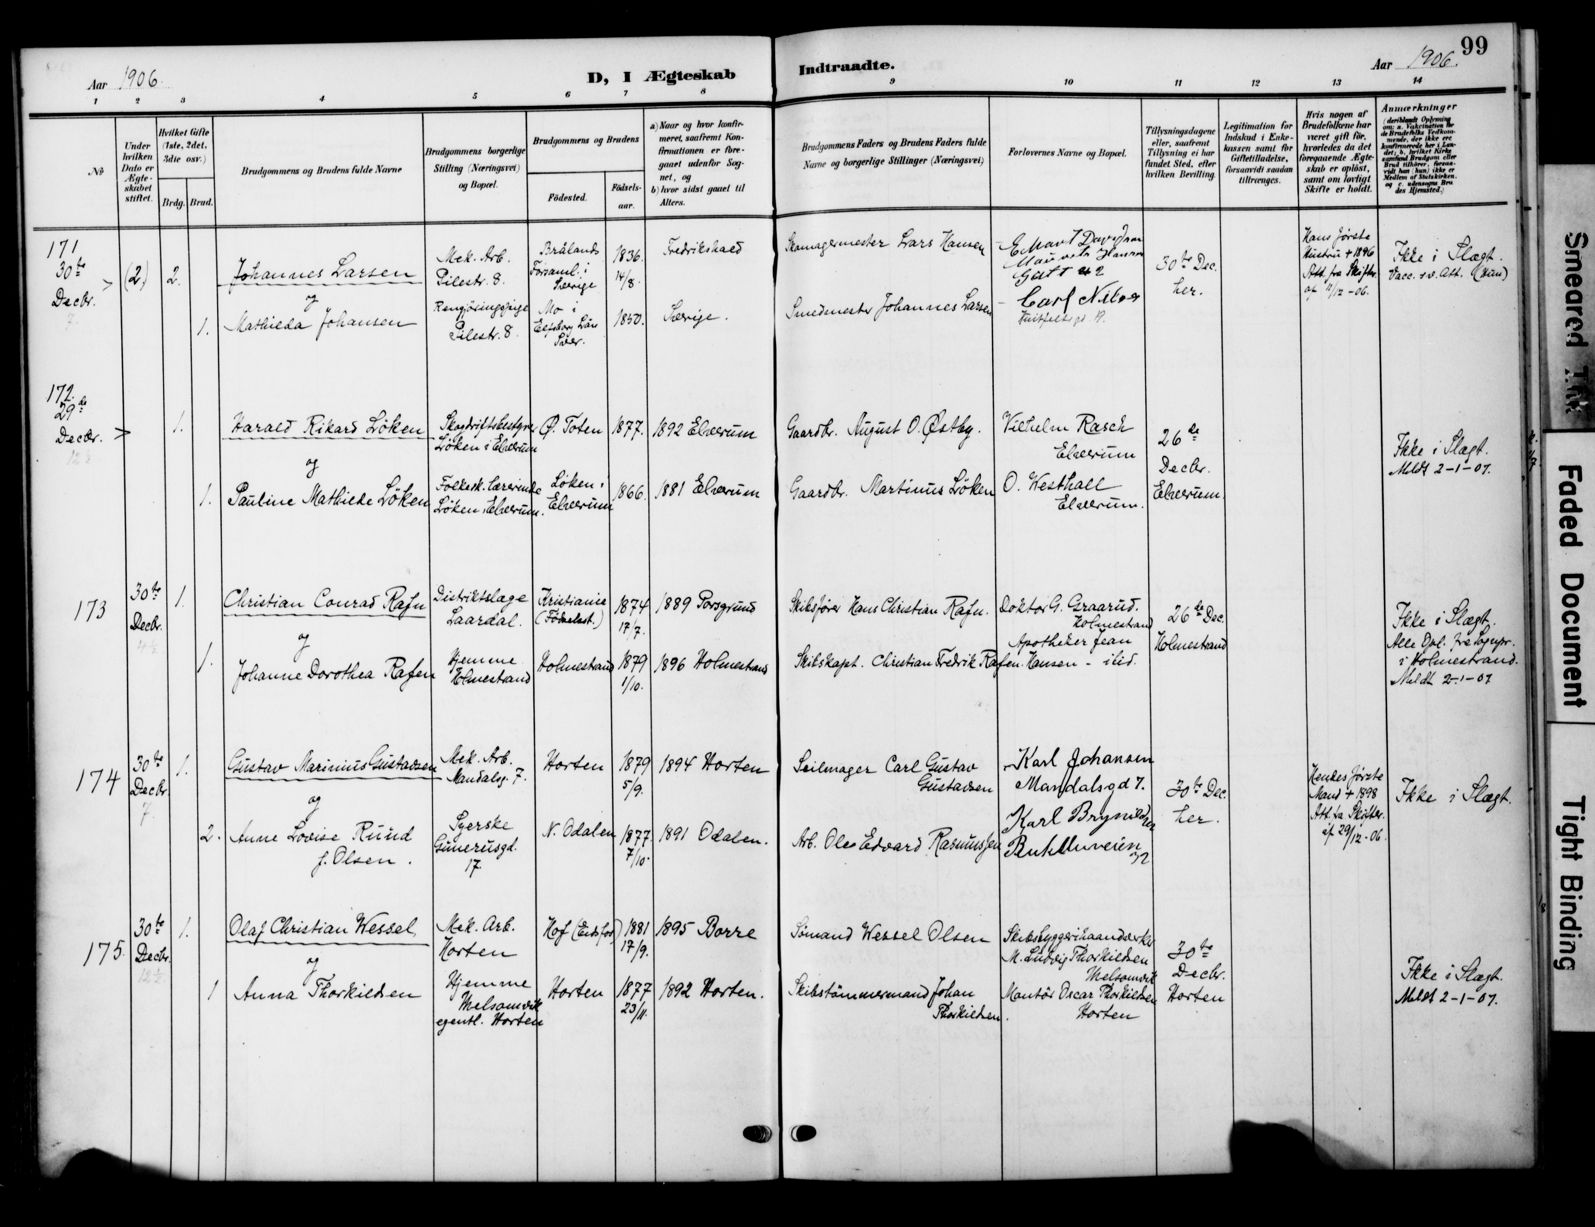 99
Aar 1906.
D, I Ægteskab
Indtraadte.
Aar 1906.
1 2 3 4 5 6 7 8 9 10 11 12 13 14
No
Under hvilken Dato er Ægteskabet stiftet.
Hvilket Gifte (1ste, 2det, 3die osv.)
Brdg. Brud.
Brudgommens og Brudens fulde Navne
Brudgommens borgerlige Stilling (Næringsvei) og Bopæl.
Brudgommens og Brudens
Fødested.
Fødselsaar.
a) Naar og hvor konfirmeret, saafremt Konfirmationen er foregaaet udenfor Sognet, og
b) hvor sidst gaaet til Alters.
Brudgommens Faders og Brudens Faders fulde Navne og borgerlige Stillinger (Næringsvei)
Forlovernes Navne og Bopæl.
Tillysningsdagene eller, saafremt Tillysning ei har fundet Sted, efter hvilken Bevilling.
Legitimation for Indskud i Enkekassen samt for Giftetilladelse, forsaavidt saadan tiltrænges.
Hvis nogen af Brudefolkene har været gift før, hvorledes da det foregaaende Ægteskab er opløst, samt om lovligt Skifte er holdt.
Anmærkninger
171
30te Decbr.
7.
(2) 2.
Johannes Larsen
Mek. Arb.
Pilestr. 8.
Brålands Forsaml. i Sverige
1836.
14/8.
Fredrikshald
Skomagermester Lars Hansen
30te Dec.
her.
Hans første Hustru + 1896
Att. fra Skifter.
af 11/12 - 06.
Ikke i Slægt.
Vacc. s.v. Att. (han)
og
1.
Mathilda Johansen
Rengjøringspige
Pilestr. 8.
Mo i Elfsborg Län Sver.
1850.
Sverige.
Smedmester Johannes Larsen
172.
29de Decbr.
12 ½
1.
Harald Rikard Löken
Skogdriftsbestyrer
Löken i Elverum
Ø. Toten
1877.
1892 Elverum
Gaardbr. August O. Østby.
Vilhelm Rasch
Elverum
26de Decbr.
Elverum.
Ikke i Slægt.
Meldt 2-1-07.
og
1.
Pauline Mathilde Löken
Folkesk. Lærerinde
Löken i Elverum.
Löken i Elverum
1866.
1881 Elverum
Gaardbr. Martinus Löken
O. Westhall
Elverum.
173
30te Decbr.
4 ½
1.
Christian Conrad Rafn
Distriktslæge
Laardal.
Kristiania
(Födselsst.)
1874
17/7.
1889 Porsgrund
Skibsfører Hans Christian Rafn.
Doktor G. Graarud.
Holmestrand
26de Dec.
Holmestrand
Ikke i Slægt.
Alle Opl. fra Sognepr.
i Holmestrand.
Meldt 2-1-07
og
1.
Johanne Dorothea Rafen
Hjemme
Holmestrand
Holmestrand
1879
1/10.
1896 Holmestrand
Skibskapt. Christian Fredrik Rafen.
Apotheker Jean
Hansen - ibid.
174
30te Decbr.
7.
1.
Gustav Marinius Gustavsen
Mek. Arb.
Mandalsg. 7.
Horten
1879
5/9.
1894 Horten
Seilmager Carl Gustav
Gustavsen
Karl Johansen
Mandalsgd 7.
30te Dec.
her.
Hendes første
Mand + 1898
Att. fra Skifter.
af 29/12 - 06.
Ikke i Slægt.
og
2.
Anne Lovise Ruud
f. Olsen.
Syerske
Gunerusgd.
17
N. Odalen
1877
7/10.
1891 Odalen.
Arb. Ole Edvard Rasmussen
Karl Brynildsen
175
30te Decbr.
12 ½
1.
Olaf Christian Wessel
Mek. Arb.
Horten
Hof (Eidsfos)
1881
17/9.
1895 Borre
Sømand Wessel Olsen
Skibsbyggerihaandverker
M. Ludvig Thorkildsen
Melsomvik
30te Decbr.
Horten
Ikke i Slægt.
Meldt 2-1-07.
og
1
Anna Thorkildsen
Hjemme
Melsomvik
egentl. Horten
Horten
1877
23/11.
1892 Horten.
Skibstömmermand Johan
Thorkildsen
Montör Oscar Thorkildsen
Horten
Smeared Ink
Faded Document
Tight Binding